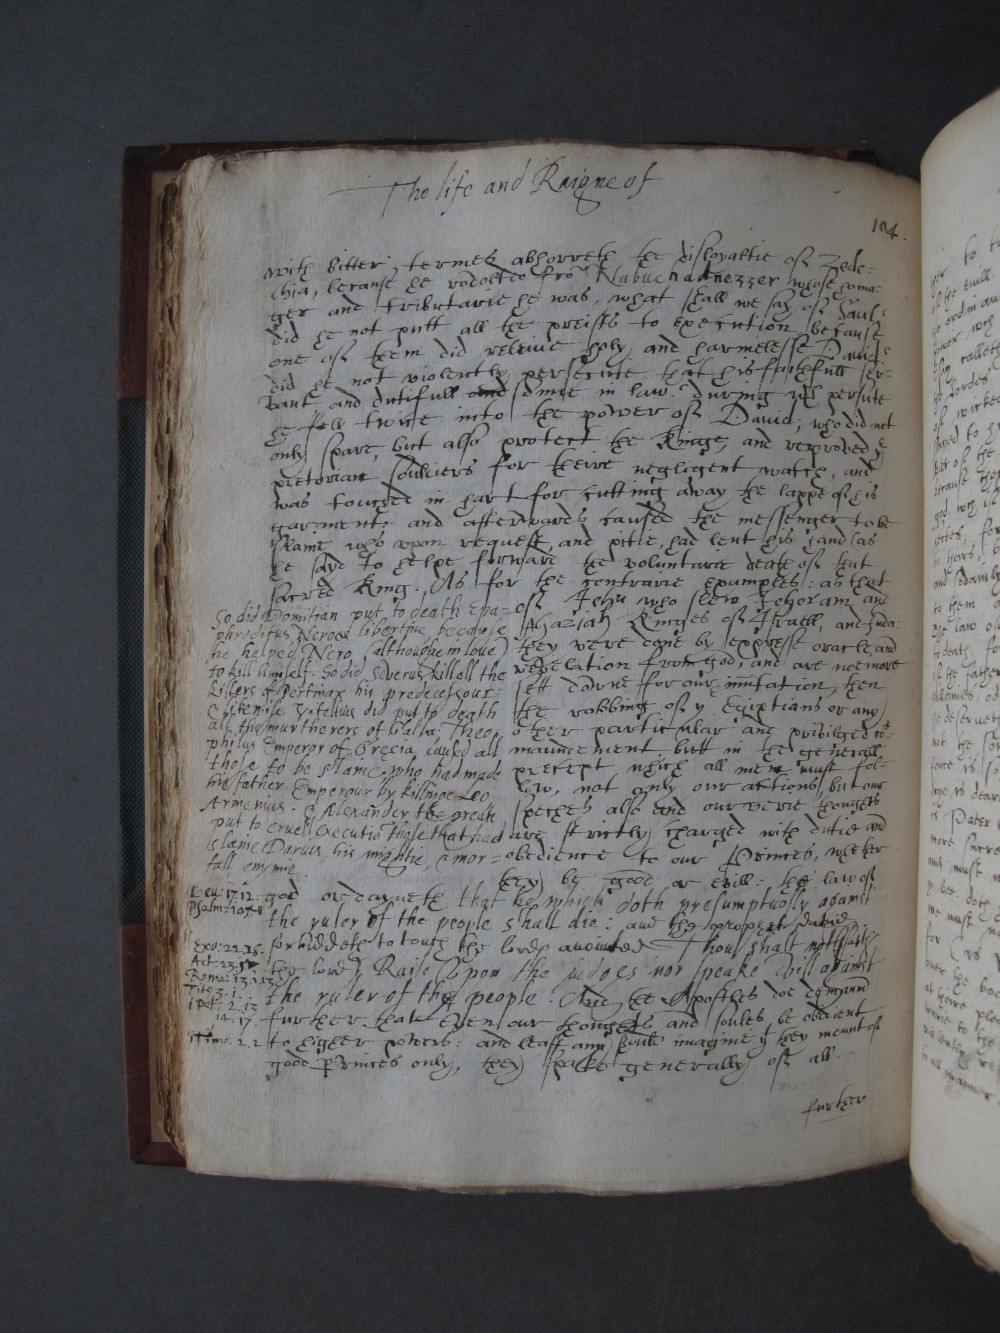 The life and Raigne of
104.
with bitter termes abhorreth the disloyaltie of Zede-
chia, because he revolted frō Nabuchadnezzer whose homa-
ger and tributarie he was, what shall we say of Saul?
did he not putt all the preists to execution because
one of them did releive holy and harmelesse David?
did he not violently persecute that his faithfull ser-
vant and dutifull sonne in law? during wch persute
he fell twice into the power of David; who did not
only spare, but also protect the Kinge, and reproved ye
pretorian souldiers for theire negligent watch, and
was touched in hart for cutting away the lappe of his
garment: and afterwards caused the messenger to be
slaine who upon request, and pitie, had lent his hand (as
he said) to helpe forward the voluntarie death of that
sacred King. As for the contrarie examples: as that
of Jehu who slew Jehoram and
Ahaziah Kinges of Israell, and Juda:
they were done by expresse oracle, and
revelation from god, and are noe more
sett downe for our imitation, then
the robbing of ye Egiptians or any
other particular and priviledged co-
maundement, butt in the generall
precept which all men must fol-
low, not only our actions, but our
speches also and our verie thoughts
are strictly charged with dutie and
obedience to our Princes, whether
they be good or evill: the law of
god ordayneth that he which doth presumptuously against
the ruler of the people shall die: and the prophet David
forbiddeth to touch the lords anointed Thou shalt not (saith
the lord) Raise upon the judges nor speake evill against
the ruler of the people. And the Apostles doe comaund
further that even our thoughts and soules be obedient
to higher powers: and least any should imagine yt they meant of
good Princes only, they spake generally of all.
further
So did Domitian put to death Epa-
phroditus Neroes libertine because
he helped Nero (although in love)
to kill himself. So did Severus kill all the
killers of Pertinax his predecessour:
& likewise Vitellius did put to death
all the murtherers of Galba: Theo-
philus Emperor of Grecia caused all
those to be slaine who had made
his father Emperour by killinge Leo
Armenius. & Alexander the great
put to cruell executiō those that had
slaine Darius, his mightie & mor-
tall enymie.
Deu: 17.12.
Psalm: 105.
Exo: 22.28.
Act: 23.5
Roma: 13.1.13
Tit: 3.1.
1 Pet: 2.13
14.17.
1 Timo: 2.2